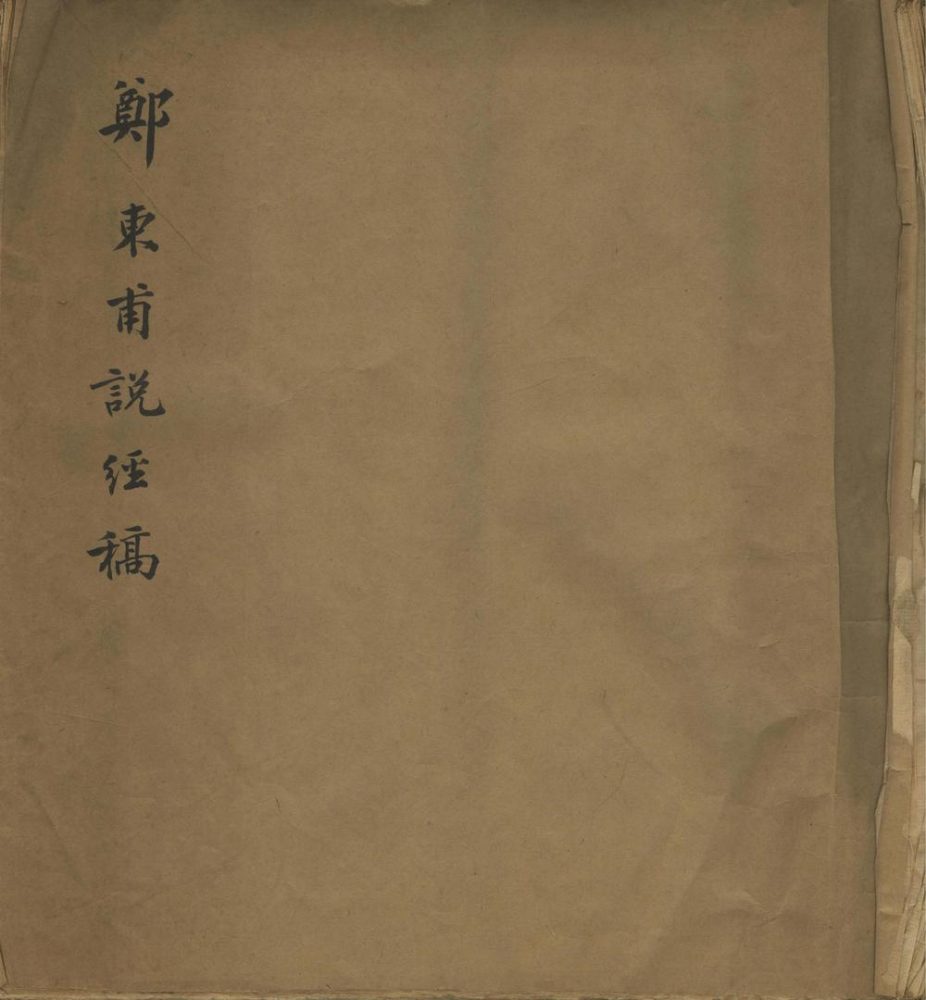 鄭東甫說經稿